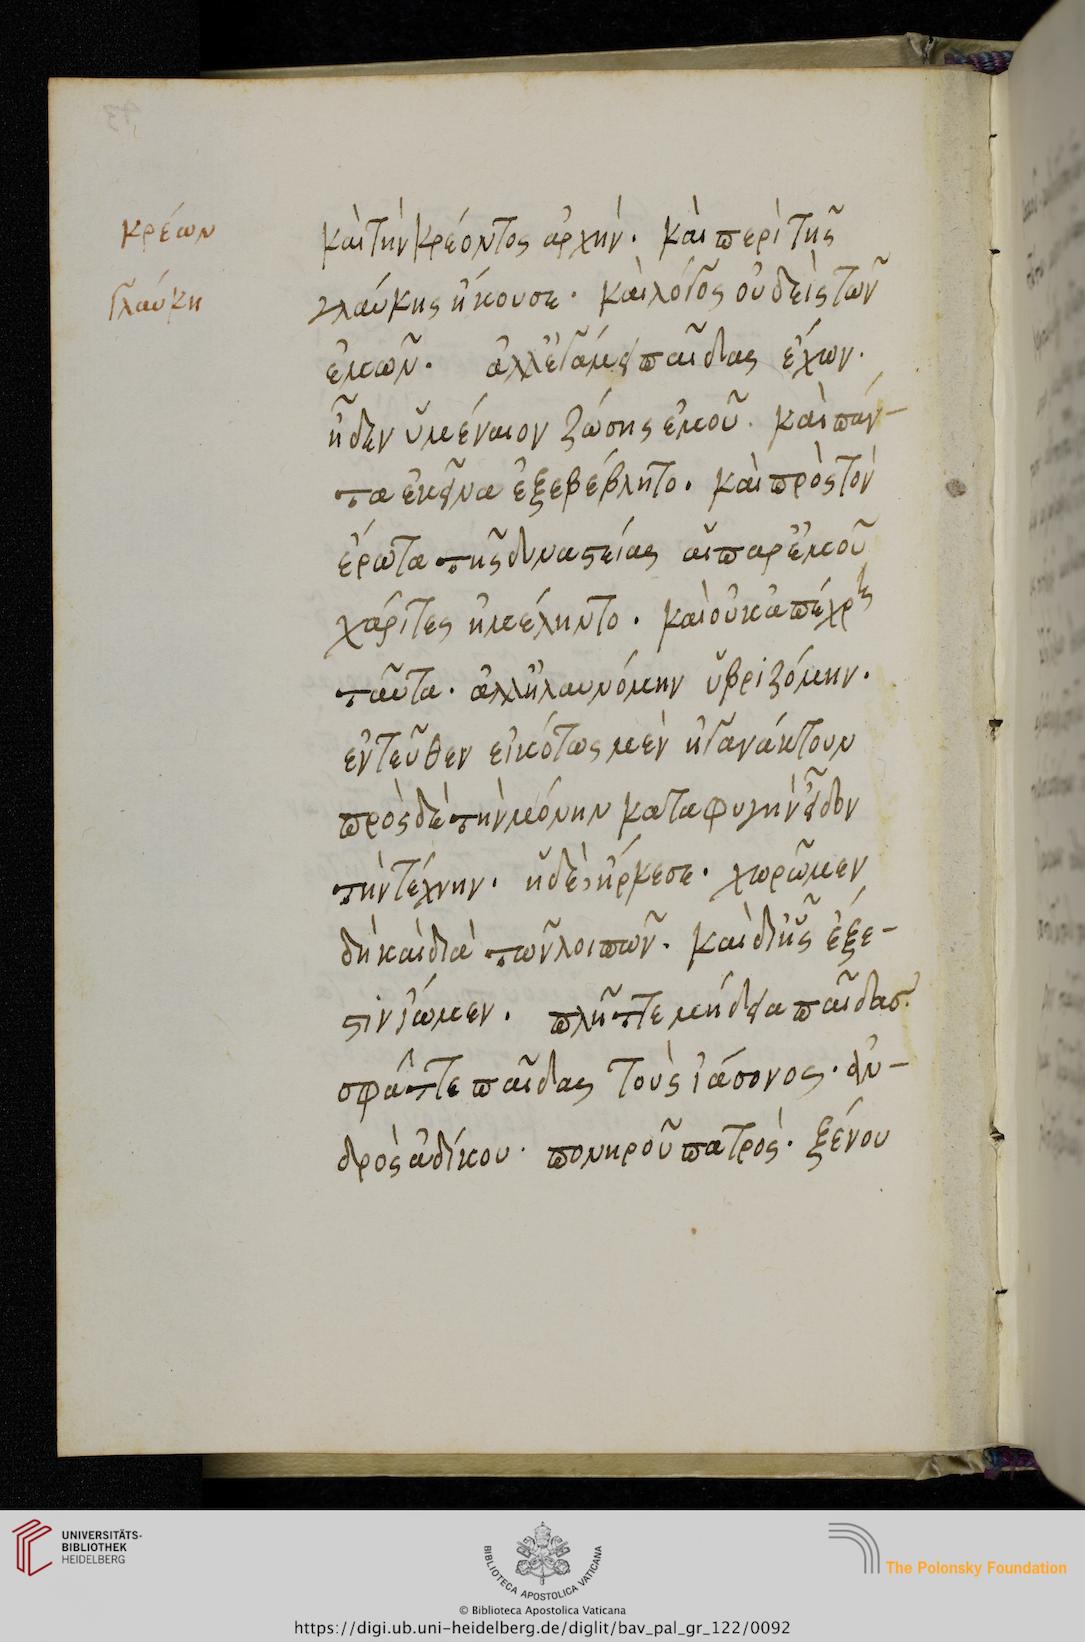 κρέων
Γλαύκη
καὶ τὴν κρέοντος ἀρχήν· καὶ περὶ τῆς
γλαύκης ἤκουσε· καὶ λόγος οὐδεὶς τῶν
ἐμῶν· ἀλλ' ἐγάμει παῖδας ἔχων·
ᾖδεν ὑμέναιον ζώσης ἐμοῦ· καὶ πάν-
τα ἐκεῖνα ἐξεβέβλητο· καὶ πρὸς τὸν
ἔρωτα τῆς δυναστείας αἱ παρ' ἐμοῦ
χάριτες ἠμέληντο· καὶ οὐκ ἀπέχρη
ταῦτα· ἀλλ' ἠλαυνόμην ὑβριζόμην·
ἐντεῦθεν εἰκότως μὲν ἠγανάκτουν
πρὸς δὲ τὴν μόνην καταφυγὴν εἶδον
τὴν τέχνην· ἡ δὲ ἤρκεσε· χωρῶμεν
δὴ καὶ διὰ τῶν λοιπῶν· καὶ δι' ἧς ἔξε-
στιν ἰώμεν· πλῆττε μήδεια παῖδας·
σφάττε παῖδας τοὺς ἰάσονος· ἀν-
δρὸς ἀδίκου· πονηροῦ πατρός· ξένου
UNIVERSITÄTS-
BIBLIOTHEK
HEIDELBERG
BIBLIOTECA APOSTOLICA VATICANA
The Polonsky Foundation
© Biblioteca Apostolica Vaticana
https://digi.ub.uni-heidelberg.de/diglit/bav_pal_gr_122/0092